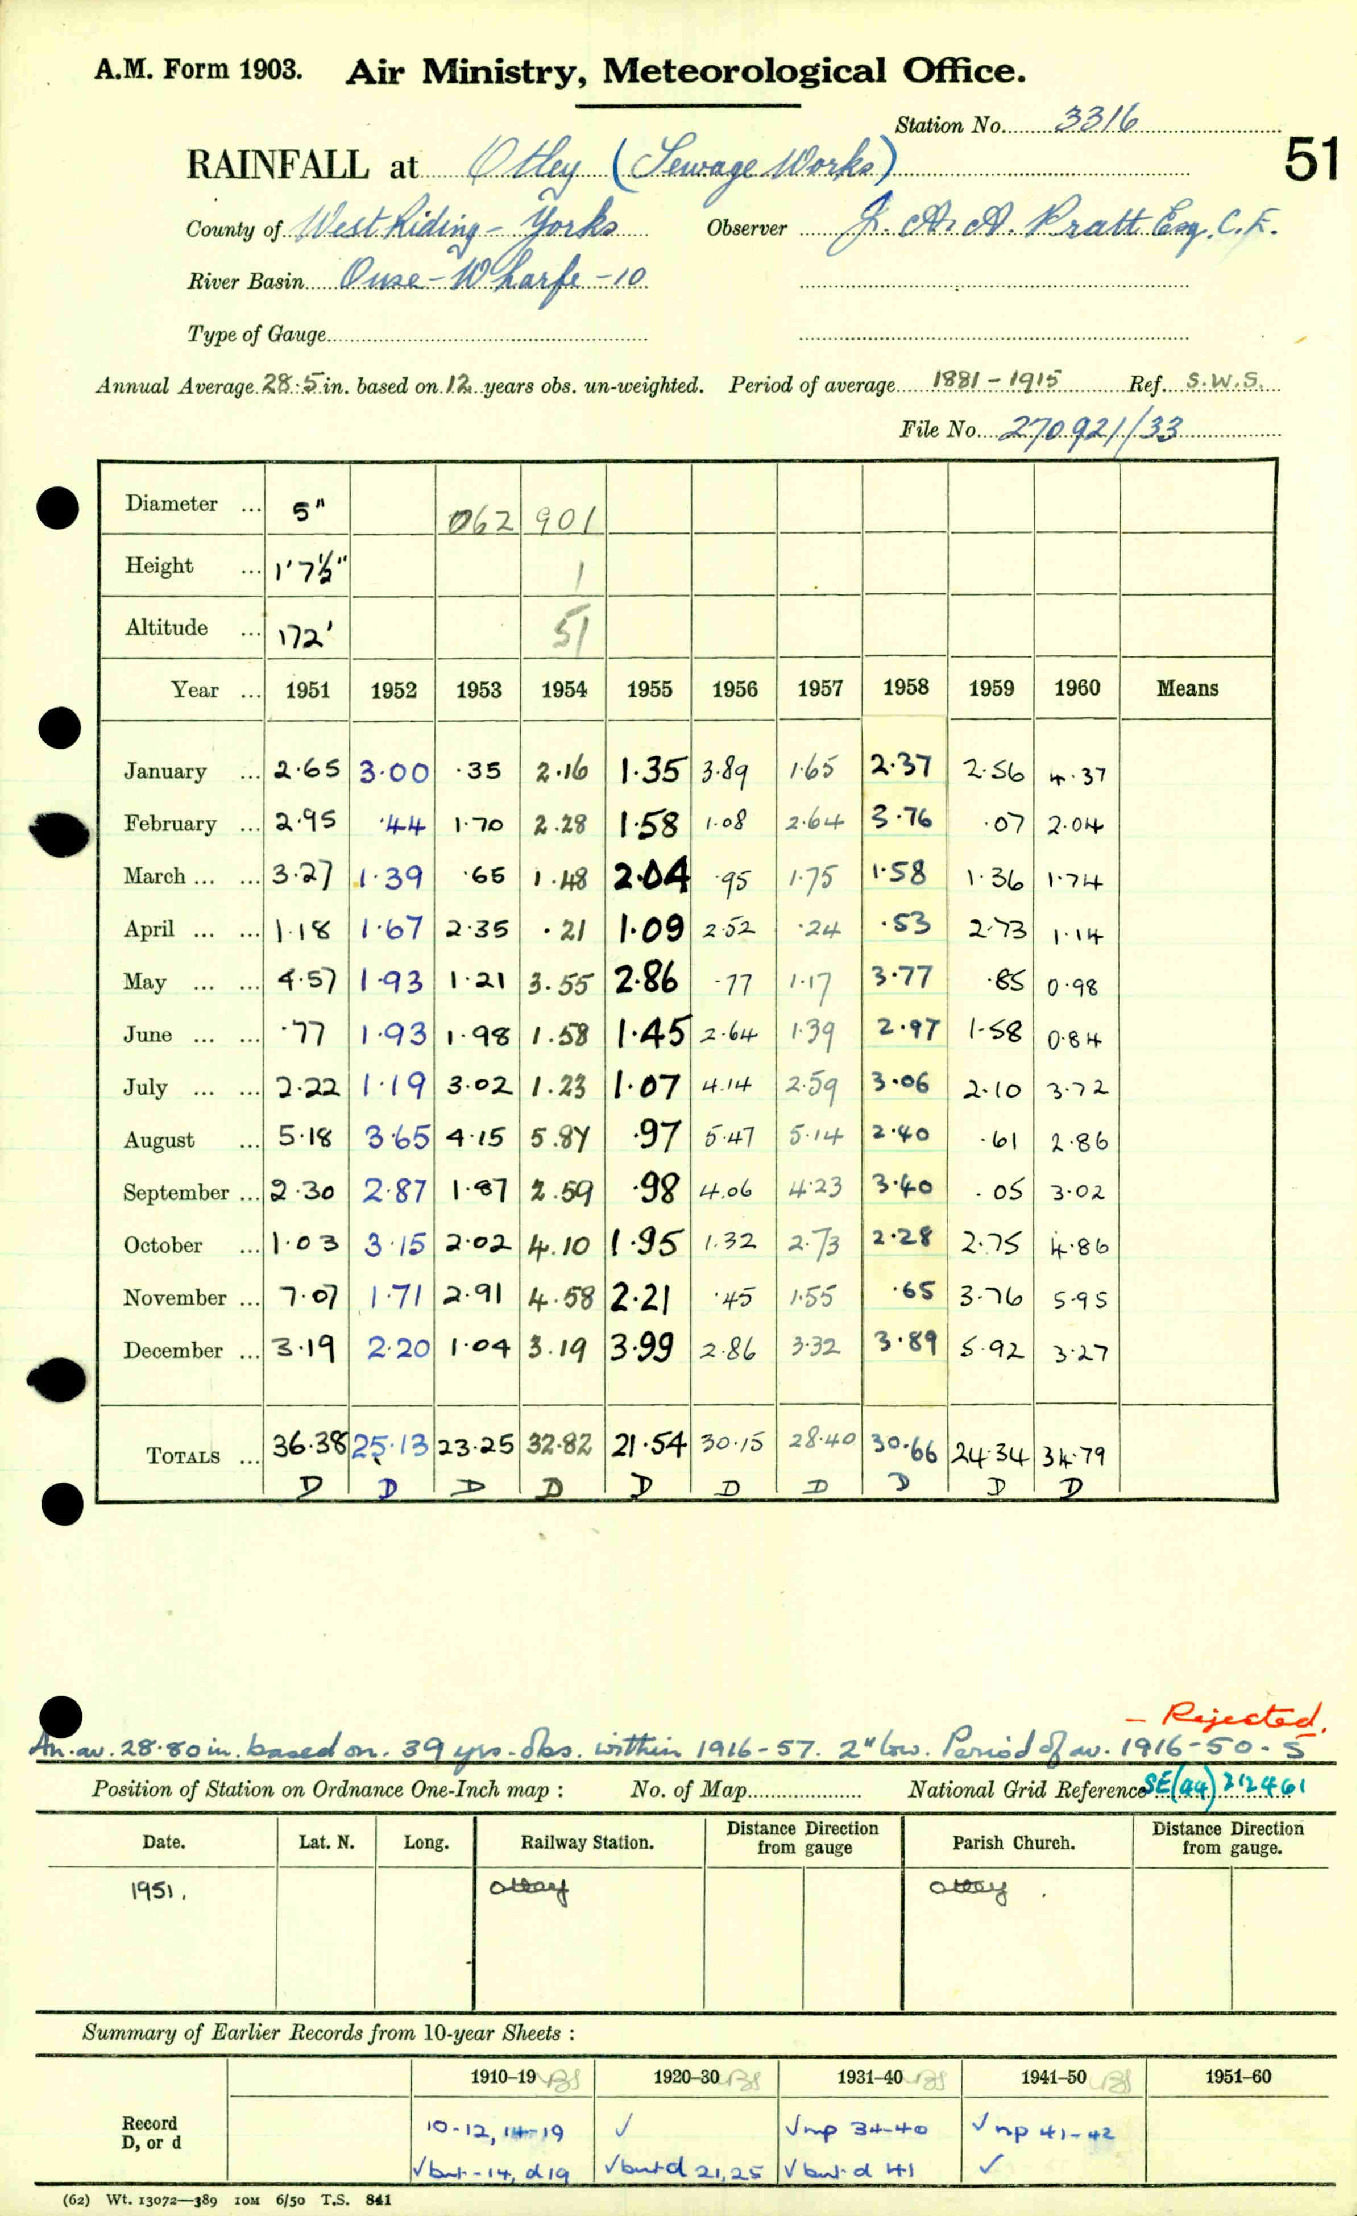 A.M. Form 1903. Air Ministry, Meteorological Office.
Station No. 3316
51
RAINFALL at Otley (Sewage Works)
County of West Riding - Yorks Observer J. A. A. Pratt Esq. C.E.
River Basin Ouse - Wharfe - 10
Type of Gauge
Annual Average 28.5 in. based on 12 years obs. un-weighted. Period of average 1881 - 1915 Ref. S.W.S.
File No. 270921/33
Diameter ... 5" 062 901
Height ... 1'7½" 1
Altitude ... 172' 51
Year ... 1951 1952 1953 1954 1955 1956 1957 1958 1959 1960 Means
January ... 2.65 3.00 .35 2.16 1.35 3.89 1.65 2.37 2.56 4.37
February ... 2.95 .44 1.70 2.28 1.58 1.08 2.64 3.76 .07 2.04
March ... ... 3.27 1.39 .65 1.48 2.04 .95 1.75 1.58 1.36 1.74
April ... ... 1.18 1.67 2.35 .21 1.09 2.52 .24 .53 2.73 1.14
May ... ... 4.57 1.93 1.21 3.55 2.86 .77 1.17 3.77 .85 0.98
June ... ... .77 1.93 1.98 1.58 1.45 2.64 1.39 2.97 1.58 0.84
July ... ... 2.22 1.19 3.02 1.23 1.07 4.14 2.59 3.06 2.10 3.72
August ... 5.18 3.65 4.15 5.87 .97 5.47 5.14 2.40 .61 2.86
September ... 2.30 2.87 1.87 2.59 .98 4.06 4.23 3.40 .05 3.02
October ... 1.03 3.15 2.02 4.10 1.95 1.32 2.73 2.28 2.75 4.86
November ... 7.07 1.71 2.91 4.58 2.21 .45 1.55 .65 3.76 5.95
December ... 3.19 2.20 1.04 3.19 3.99 2.86 3.32 3.89 5.92 3.27
TOTALS ... 36.38 25.13 23.25 32.82 21.54 30.15 28.40 30.66 24.34 34.79
D D D D D D D D D D
- Rejected.
An. av. 28.80 in. based on. 39 yrs. obs. within 1916-57. 2" low. Period of av. 1916-50 - S
Position of Station on Ordnance One-Inch map : No. of Map National Grid Reference SE(44) 212461
Date. Lat. N. Long. Railway Station. Distance from Direction gauge Parish Church. Distance from Direction gauge.
1951. Otley Otley
Summary of Earlier Records from 10-year Sheets :
1910–19 1920–30 1931–40 1941–50 1951–60
Record 10-12, 14-19 ✓ ✓ mp 34-40 ✓ mp 41-42
D, or d ✓ but - 14, d 19 ✓ but d 21, 25 ✓ but d 41 ✓
(62) Wt. 13072—389 10M 6/50 T.S. 841